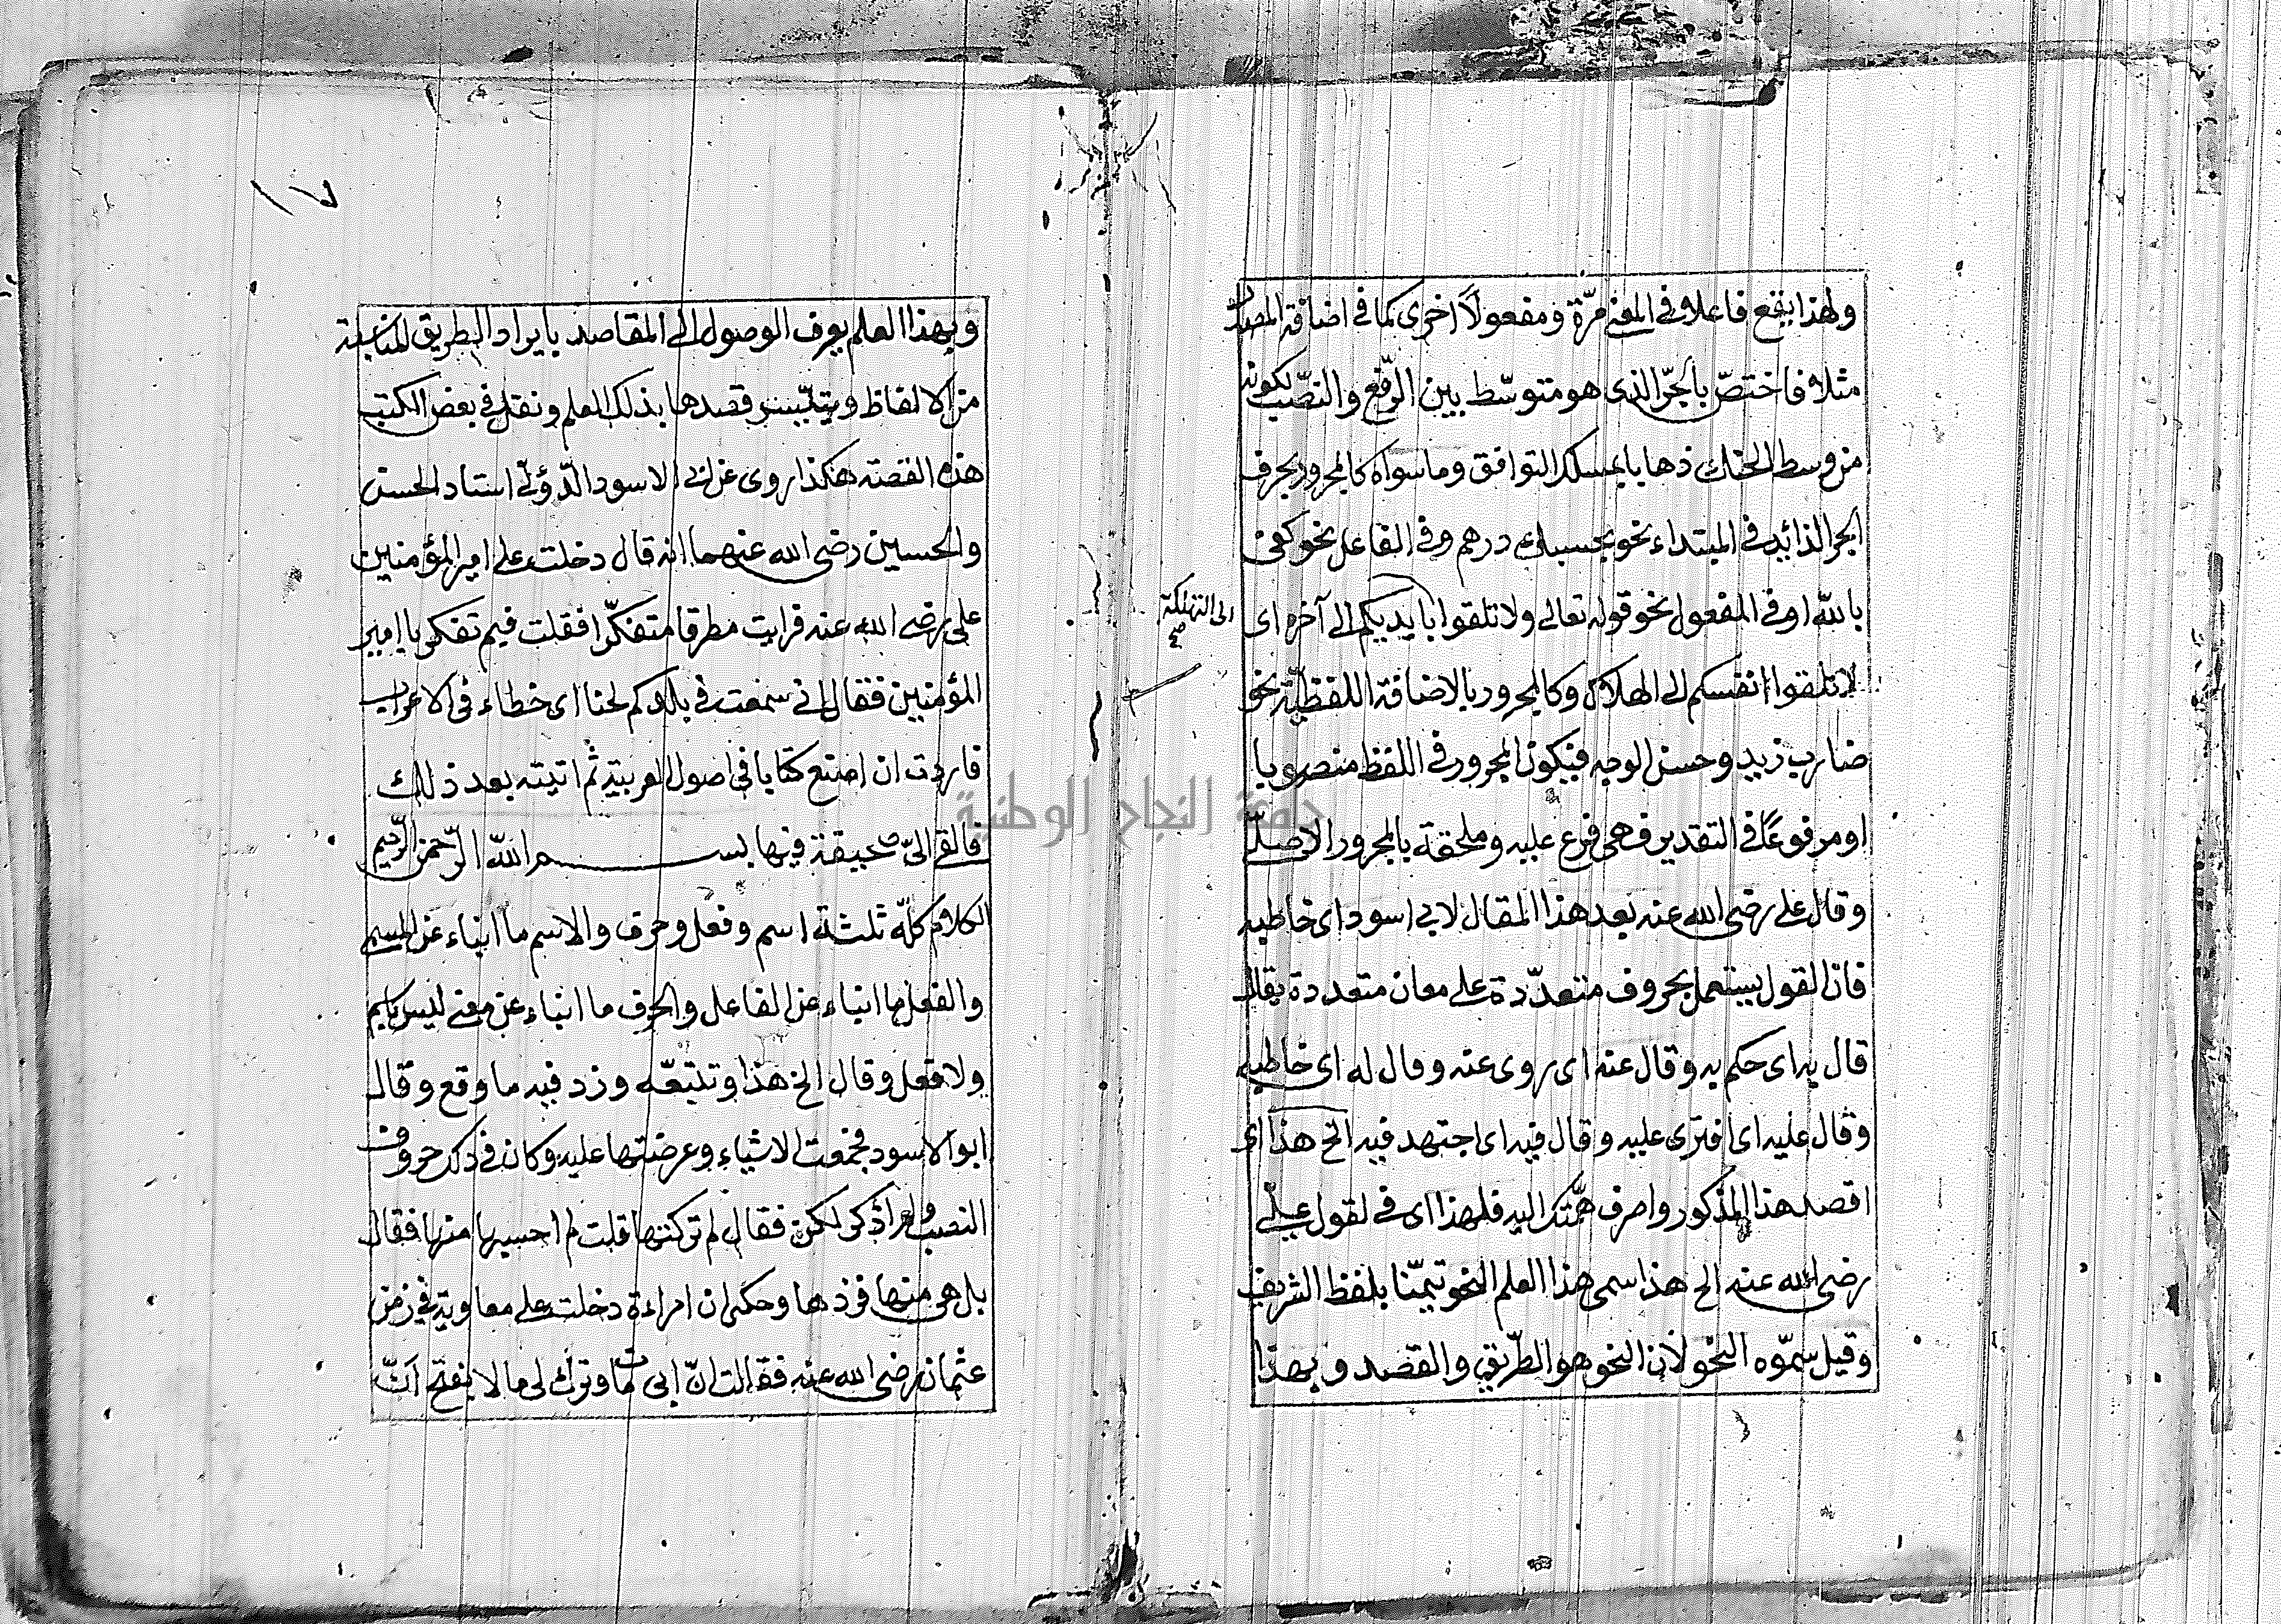 ولهذا يقع فاعلا في المعنى مرّة ومفعولاً اخرى كما في اضافة المصدر
مثلا فاختصّ بالجرّ الذى هو متوسّط بين الرّفع والنصّب لكونه
من وسط الحنك ذهابا بمسلك التوافق وما سواه كالمجرور بحرف
الجر الذائد في المبتداء نحو بحسبك درهم وفي الفاعل نحو كفى
بالله او في المفعول نحو قوله تعالى ولا تلقوا بايديكم الى آخره اى
الى التهلكة
صح
لا تلقوا انفسكم الى الهلاك وكالمجرور بالاضافة اللفظيّة نحو
ضارب زيد وحسن الوجه فيكون المجرور في اللفظ منصوبا
او مرفوعًا في التقدير فهى فرع عليه وملحقة بالمجرور الاصلّى
وقال على رضى الله عنه بعد هذا المقال لابي اسود اى خاطبه
فان القول يستعمل بحروف متعدّدة على معان متعددة يقال
قال به اى حكم به وقال عنه اى روى عنه وقال له اى خاطبه
وقال عليه اى افترى عليه وقال فيه اى اجتهد فيه انح هذا اى
اقصد هذا المذكور واصرف همّتك اليه فلهذا اى في لقول على
رضى الله عنه انح هذا سمى هذا العلم النحو تيمّنا بلفظ الشريف
وقيل سمّوه النحو لأن النحو هو الطّريق والقصد وبهذا
١٧
وبهذا العلم يعرف الوصول الى المقاصد بايراد الطريق المناسبة
من الالفاظ ويتلبس قصدها بذلك العلم ونقل في بعض الكتب
هذه القصة هكذا روى عن ابى الاسود الدّؤلّى استاد الحسن
والحسين رضى الله عنهما انه قال دخلت على امير المؤمنين
على رضى الله عنه فرايت مطرقا متفكّرا فقلت فيم تفكر يا امير
المؤمنين فقال انى سمعت في بلدكم لحنا اى خطاء في الاعراب
فاردت ان اصنع كتابا في اصول العربية ثم اتيته بعد ذلك
فالقى الىّ صحيفة فيها بسم الله الرّحمن الرّحيم
الكلام كلّه ثلثة اسم وفعل وحرف والاسم ما انباء عن المسمى
والفعل ما انباء عن الفاعل والحرف ما انباء عن معنى ليس باسم
ولا فعل وقال انح هذا وتتبّعه وزد فيه ما وقع وقال
ابو الاسود فجمعت الاشياء وعرضتها عليه وكان في ذلك حروف
النصب ولم اذكر لكن فقال لم تركتها قلت لم احسبها منها فقال
بل هى منها فزدها وحكى ان امراءة دخلت على معاوية في زمن
عثمان رضى الله عنه فقالت انّ ابى مات وترك لى مالا بفتح انّ